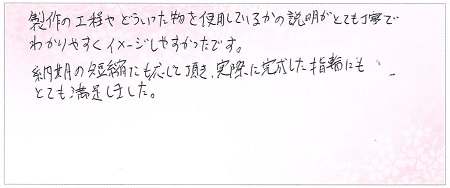 製作の工程やどういった物を使用しているかの説明がとても丁寧で
わかりやすくイメージしやすかったです。
納期の短縮にも応じて頂き、実際に完成した指輪にも
とても満足しました。